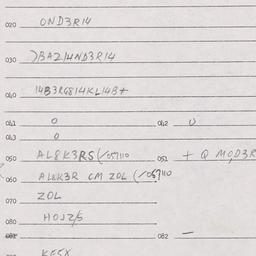 020 OND3R14
030 )BAZ14ND3R14
040 14B3RG814KL14B+
041 0 042 0
043 0
050 AL8K3RS(/057110 051 + Q MOD3R
060 AL8K3R CM ZOL (/057110
070 ZOL
080 HOJZ/S
082 —
KE5X